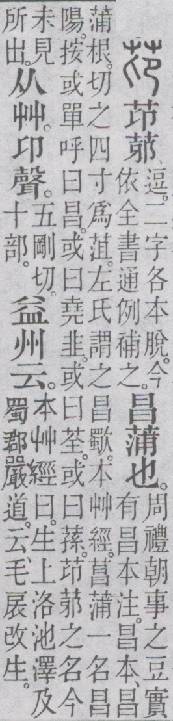 茚䓉
逗。二字各本脫。今
依全書通例補之。
昌蒲也。
周禮朝事之豆實
有昌本。注。昌本、昌
蒲根。切之四寸爲菹。左氏謂之昌歜。本艸經。菖蒲一名昌
陽。按或單呼曰昌。或曰堯韭。或曰荃。或曰蓀。茚䓉之名今
未見
所出。
从艸。卬聲。
五剛切。
十部。
益州云。
本艸經曰。生上洛池澤及
蜀郡嚴道。云、毛扆改生。